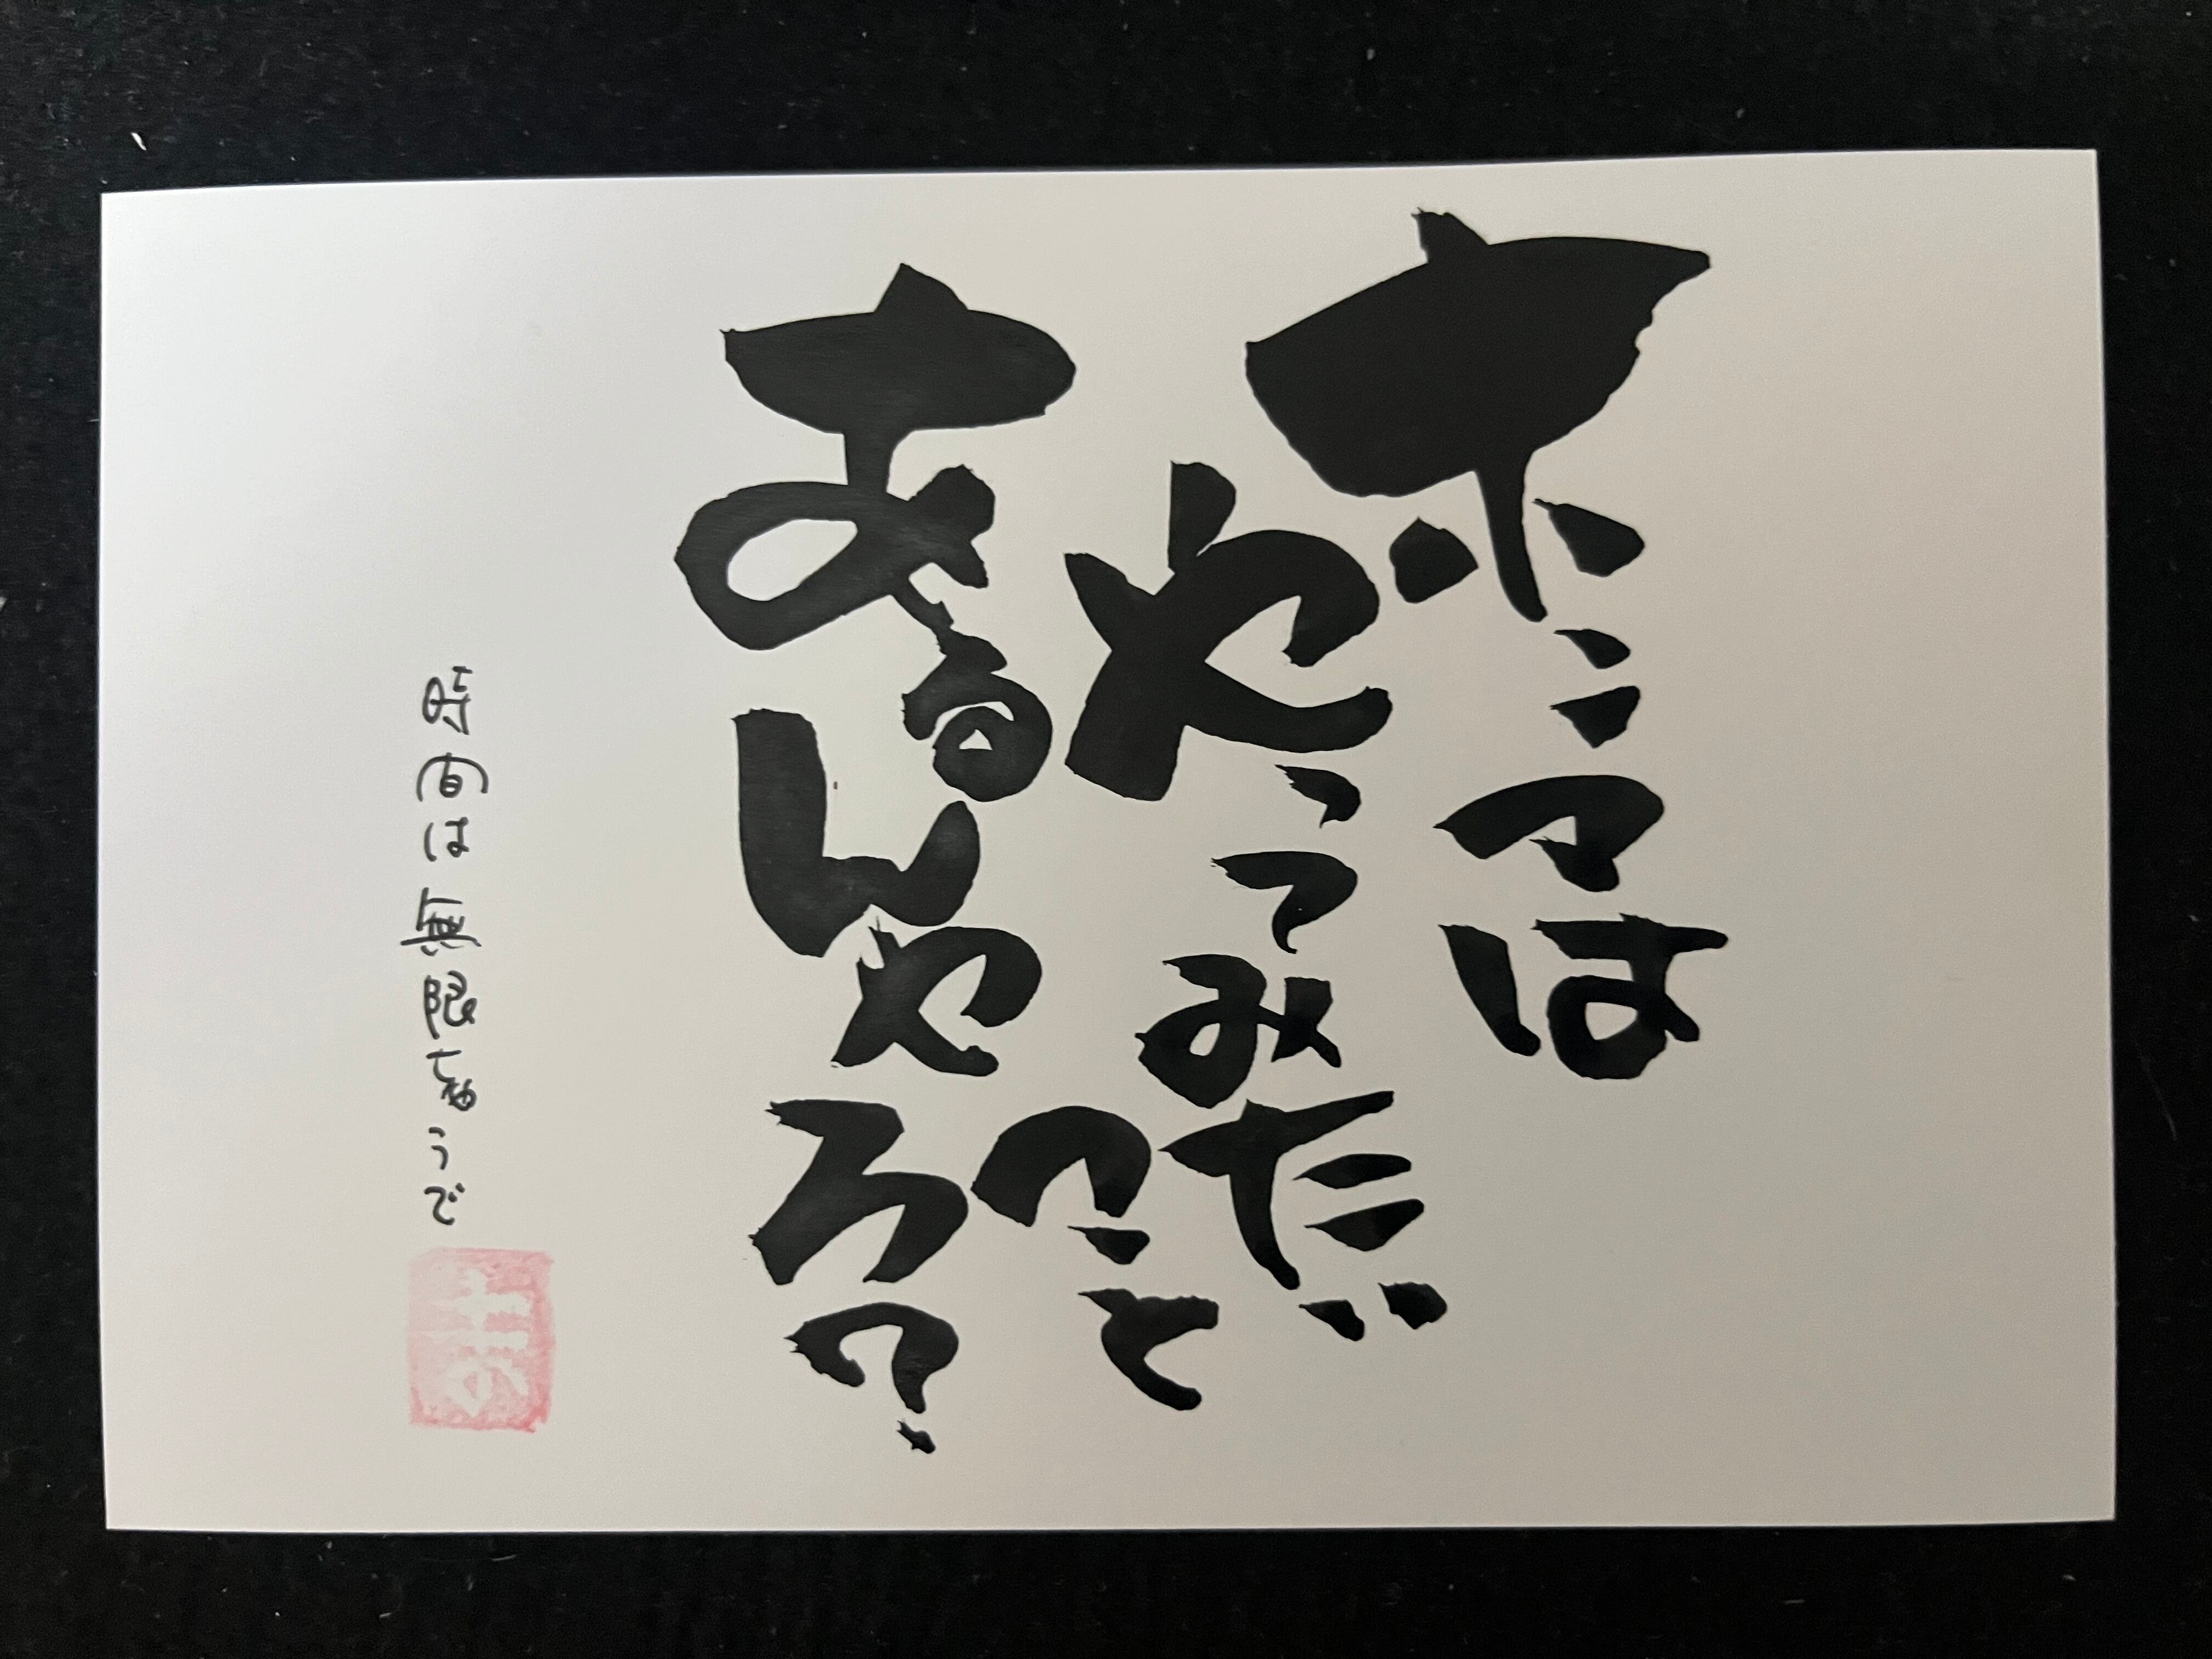 ホンマは
やってみたい
コト
あるんやろ？
時間は無限ちゃうで